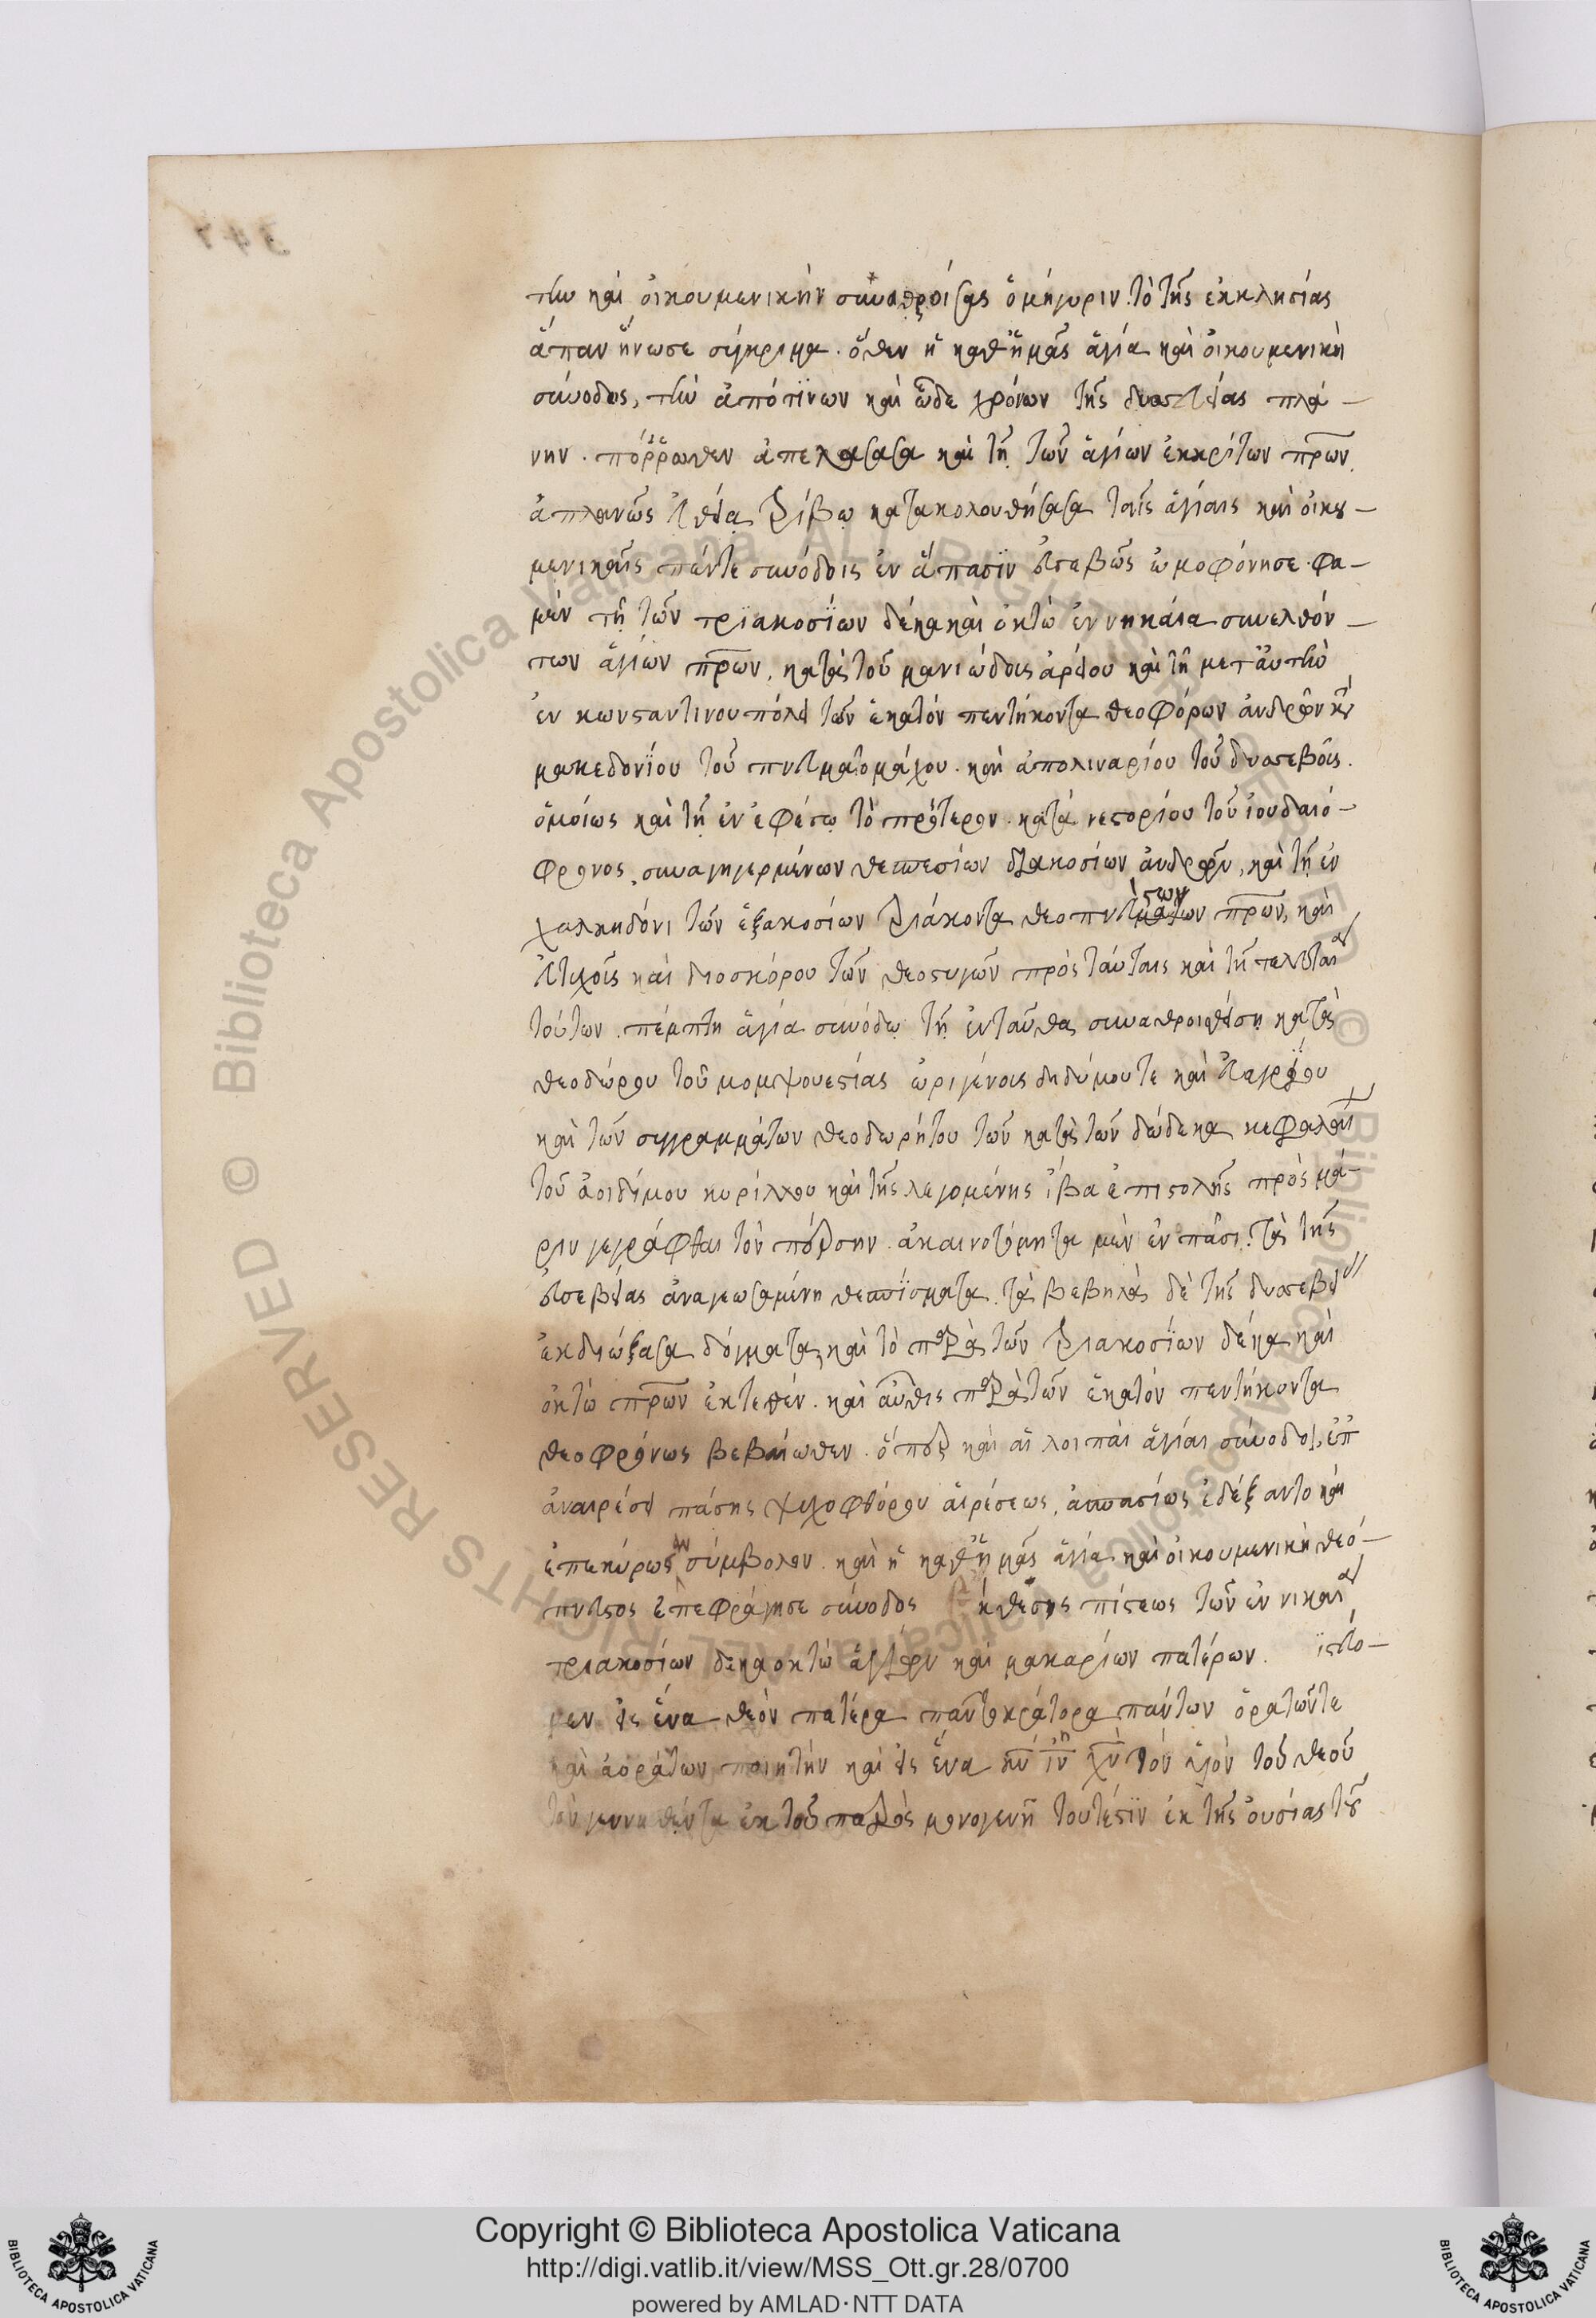 την καὶ οἰκουμενικὴν συναθροίσας ὁμήγυριν. τὸ τῆς ἐκκλησίας
ἅπαν ἥνωσε σύγκριμα. ὅθεν ἡ καθ' ἡμᾶς ἁγία καὶ οἰκουμενικὴ
σύνοδος, τὴν ἀπό τινων καὶ ὧδε χρόνων τῆς δυσσεβείας πλά-
νην. πόῤῥωθεν ἀπελάσασα καὶ τῇ τῶν ἁγίων ἐκκρίτων πρων
ἀπλανῶς εὐθεία τρίβῳ κατακολουθήσασα ταῖς ἁγίαις καὶ οἰκου-
μενικαῖς πέντε συνόδοις ἐν ἅπασϊν εὐσεβῶς ὡμοφόνησε. φα-
μὲν τῇ τῶν τρϊακοσΐων δέκα καὶ ὀκτὼ ἐν νηκαία συνελθόν-
των ἁγίων πρων, κατὰ τοῦ μανιώδους ἀρείου καὶ τῇ μετ' αὐτὴν
ἐν κωνσταντινουπόλει τῶν ἑκατόν πεντήκοντα θεοφόρων ἀνδρῶν κατὰ
μακεδονΐου τοῦ πνευματομάχου. καὶ ἀπολιναρίου τοῦ δυσσεβοῦς.
ὁμοίως καὶ τῇ ἐν ἐφέσω τὸ πρότερον. κατὰ νεστορίου τοῦ ἰουδαιό-
φρονος, συναγηγερμένων θεσπεσίων διακοσίων ἀνδρῶν, καὶ τῇ ἐν
χαλκηδόνι τῶν ἑξακοσίων τριάκοντα θεοπνεύστων πρων, κατὰ
εὐτυχοῦς καὶ διοσκόρου τῶν θεοστυγῶν πρὸς ταύταις καὶ τῇ τελευταία
τούτων. πέμπτη ἁγία συνόδω τῇ ἐνταῦθα συναθροισθείση κατὰ
θεοδώρου τοῦ μομψουεστίας ὠριγένους διδύμου τε καὶ εὐαγρΐου
καὶ τῶν συγγραμμάτων θεοδωρήτου τῶν κατὰ τῶν δώδεκα κεφαλαίων
τοῦ ἀοιδήμου κυρίλλου καὶ τῆς λεγομένης ἴβα ἐπιστολῆς πρὸς μά-
ριν γεγράφθαι τὸν πέρσην. ἀκαινοτόμητα μὲν ἐν πᾶσι. τὰ τῆς
εὐσεβείας ἀναγεωσαμένη θεσπΐσματα. τὰ βέβηλα δὲ τῆς δυσσεβείας
ἐκδιώξασα δόγματα, καὶ τὸ παρὰ τῶν τριακοσΐων δέκα καὶ
ὀκτὼ πρων ἐκτεθέν. καὶ αὖθις παρὰ τῶν ἑκατόν πεντήκοντα
θεοφρόνως βεβαίωθεν. ὅπερ καὶ αἱ λοιπαὶ ἅγίαι σύνοδοι, ἐπ'
ἀναιρέσει πάσης ψυχοφθόρου αἱρέσεως, ἀσπασίως ἐδέξαντο καὶ
ἐπεκύρωσαν σύμβολον. καὶ ἡ καθ' ἡμᾶς ἁγία καὶ οἰκουμενικὴ θεό-
πνευστος ἐπεσφράγησε σύνοδος ἐκθέσης πίστεως τῶν ἐν νικαία
τριακοσίων δεκαοκτὼ ἁγίων καὶ μακαρίων πατέρων. πϊστεύο-
μεν εἰς ἕνα θεὸν πατέρα παντοκράτορα πάντων ὁρατῶν τε
καὶ ἀοράτων ποιητὴν καὶ εἰς ἕνα κν ἰν χν τὸν υἱὸν τοῦ θεοῦ
τὸν γεννηθέντα ἐκ τοῦ πατρὸς μονογενῆ τουτέστϊν ἐκ τῆς οὐσίας τοῦ
Copyright © Biblioteca Apostolica Vaticana
http://digi.vatlib.it/view/MSS_Ott.gr.28/0700
powered by AMLAD·NTT DATA